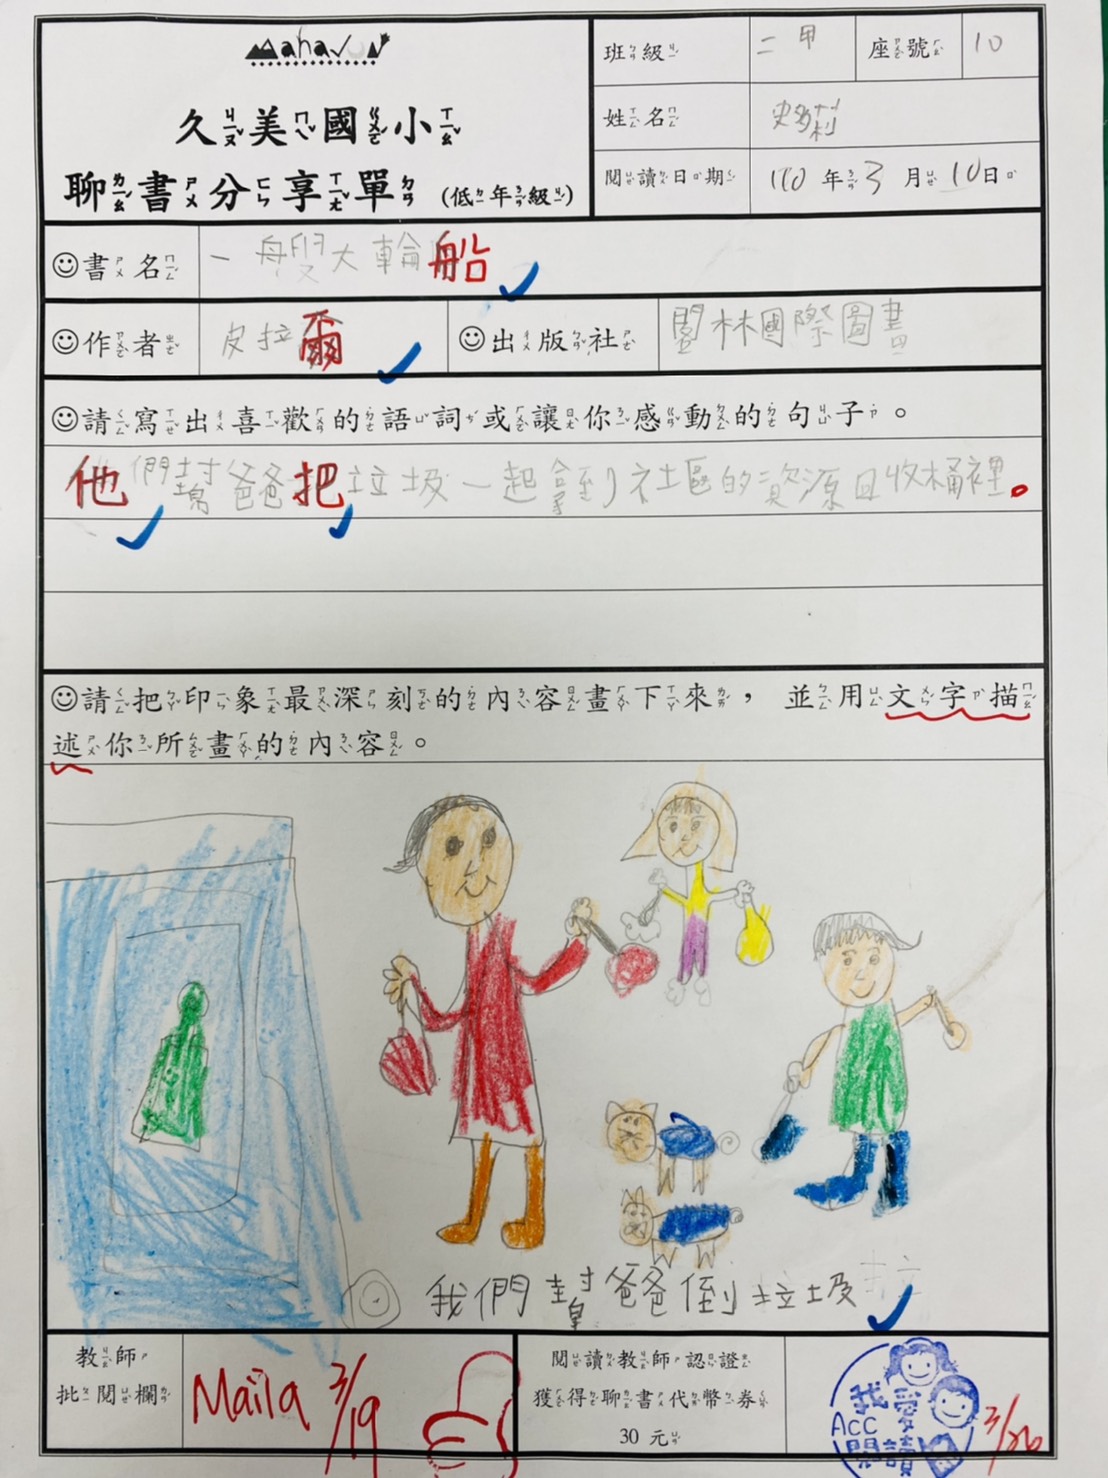 Mahavun
久美國小
聊書分享單(低年級)
班級 二甲 座號 10
姓名 史莉
閱讀日期 110年3月10日
☺書名 一艘大輪船
☺作者 皮拉爾 ☺出版社 閣林國際圖書
☺請寫出喜歡的語詞或讓你感動的句子。
他們幫爸爸把垃圾一起拿到社區的資源回收桶裡。
☺請把印象最深刻的內容畫下來，並用文字描
述你所畫的內容。
我們幫爸爸倒垃圾
教師
批閱欄
Maila 3/19
閱讀教師認證
獲得聊書代幣券
30元
我愛
ACC
閱讀
3/26